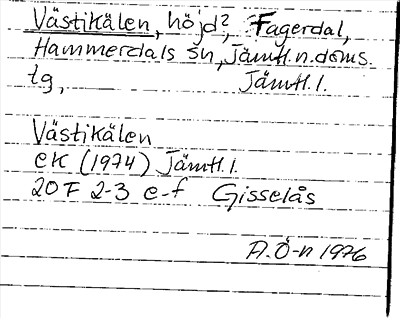 Västikälen, höjd?, Fagerdal,
Hammerdals sn, Jämtl.n.doms.
tg, Jämtl.l.
Västikälen
ek (1974) Jämtl.l.
20F 2-3 e-f Gisselås
A.Ö-n 1976